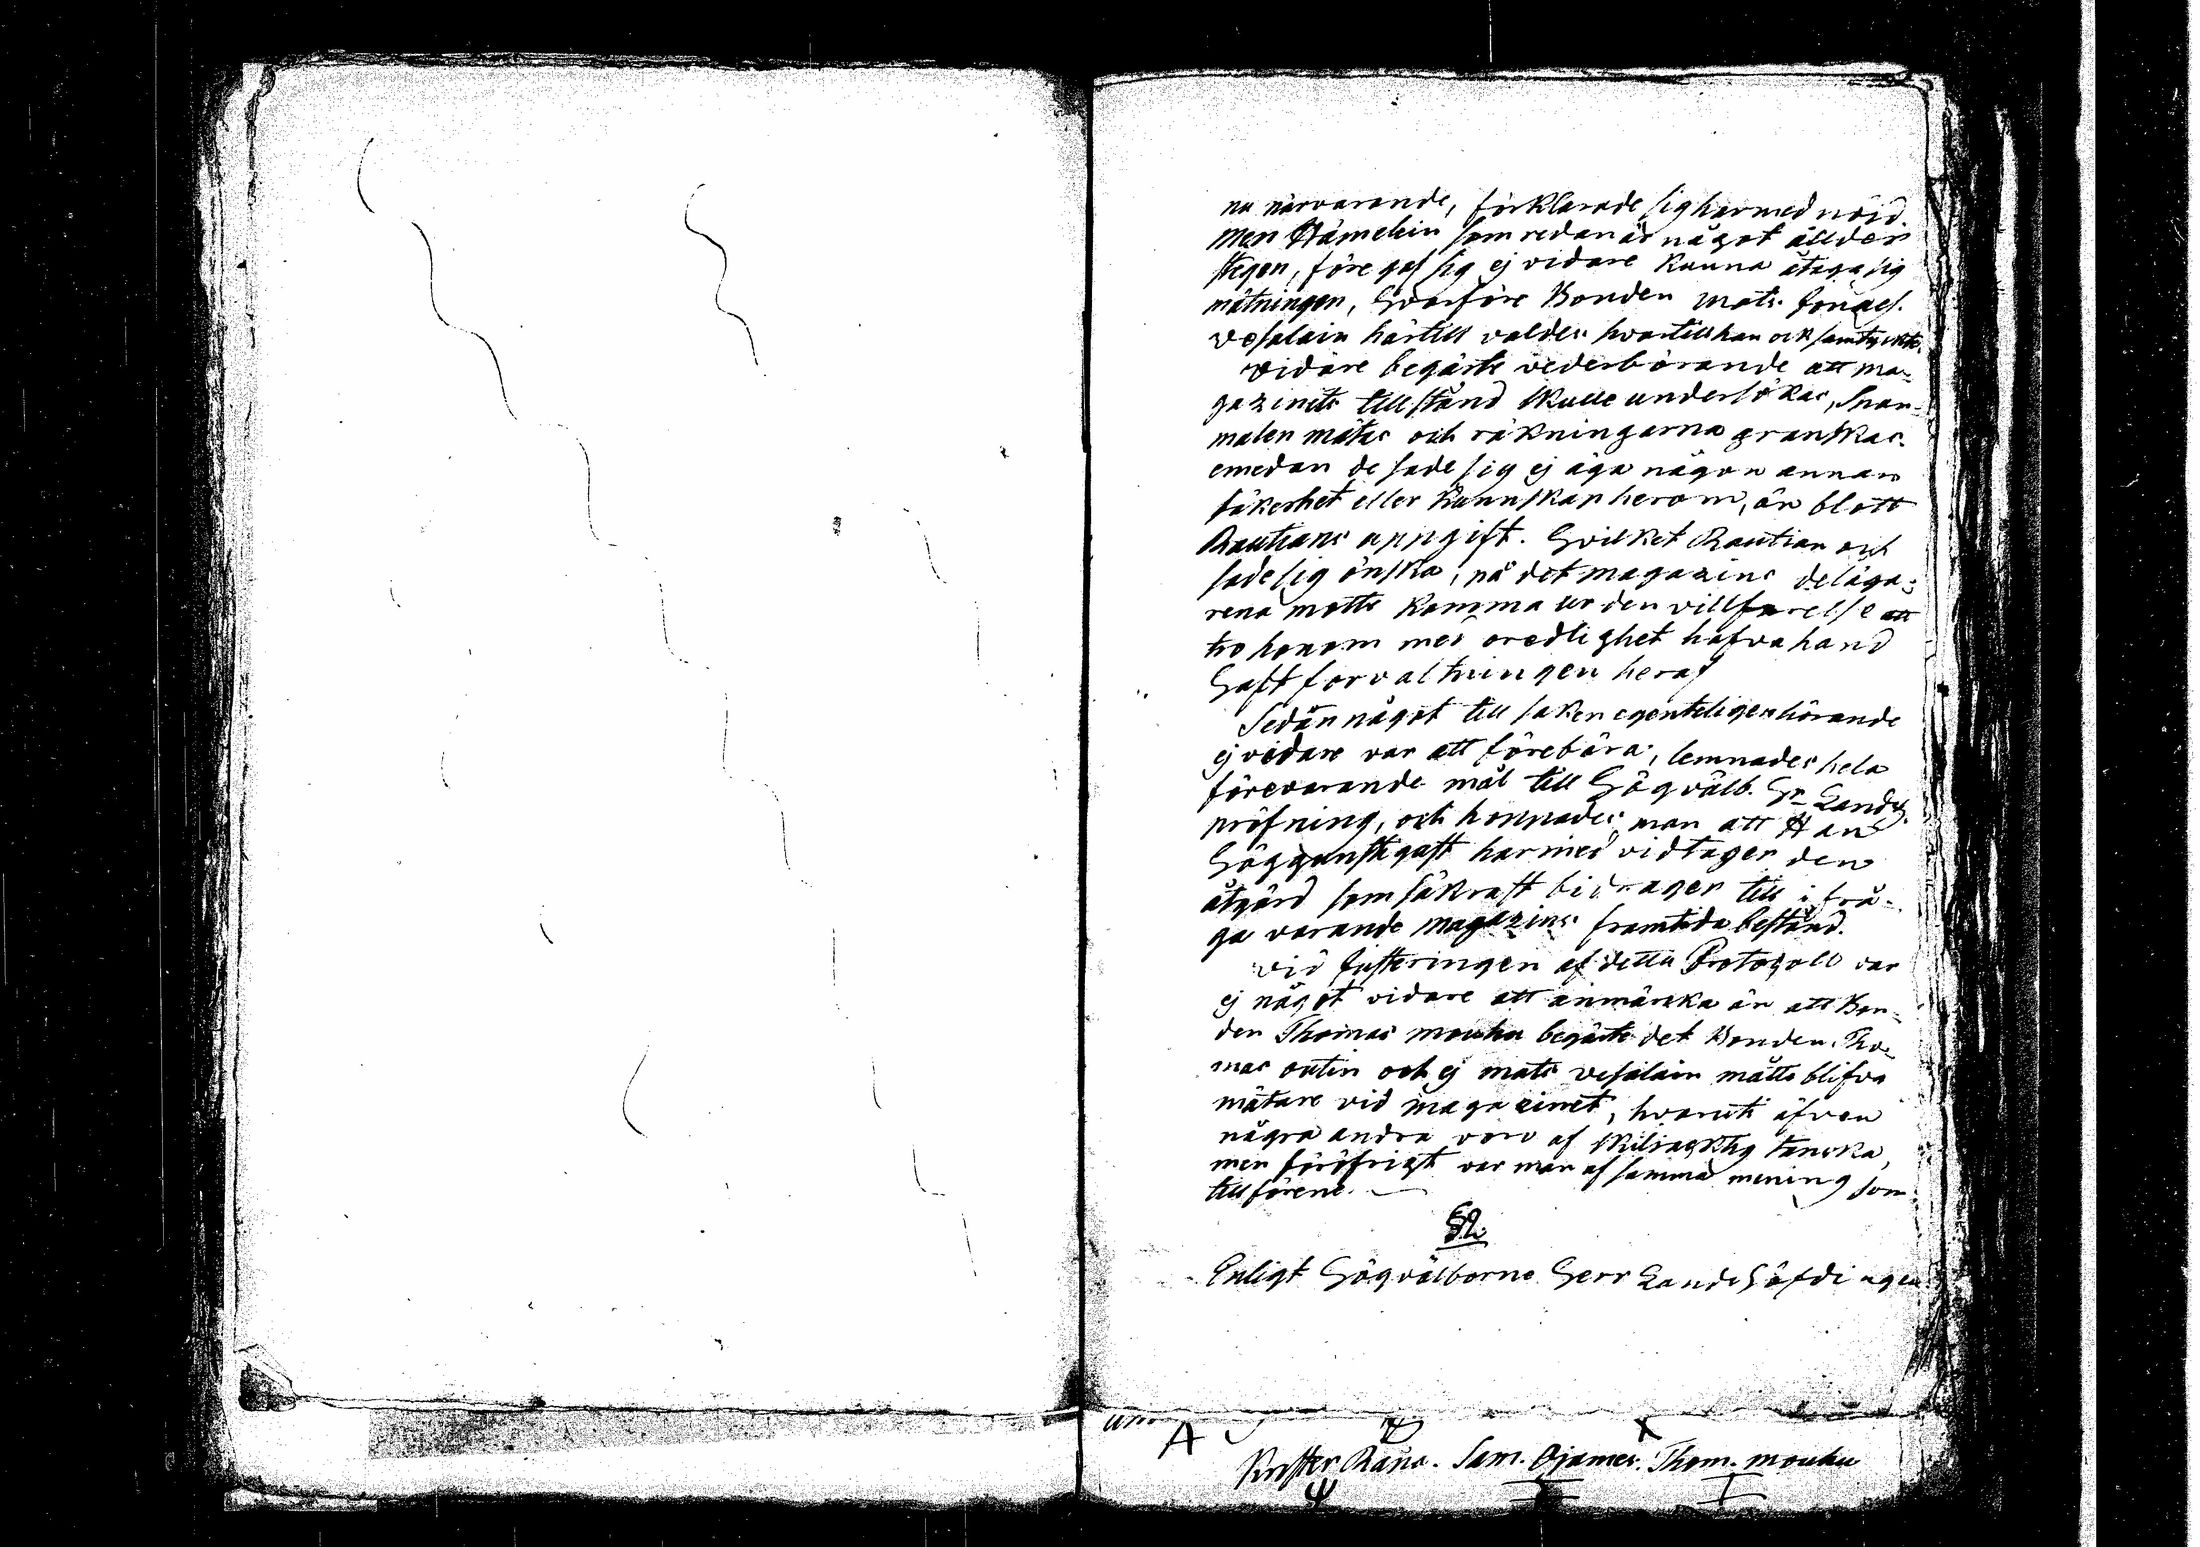 nu närvarande, förklarade sig härmed nöjd.
Men Hämelein som redan är något ålder
stegen,föregaf sig ej vidare kunna åtaga sig
mätningen, Hvarföre Bonden Mats Jönaes.
Vesalain härtill valdes hvartill han ock samtyckte.
Vidare begärte vederbörande att ma-
gazinets tillstånd skulle undersökas, Span-
målen mätas och räkningarna granskas.
emedan de sade sig ej äga någon annan
säkerhet eller kunnskap herom, än blott
Rautians uppgift. Hvilket Rautian och
sade sig önska, på det magazins deläga-
rena motte komma ur den villfarelse att
tro honom med oredlighet hafva hand
Haft förvaltningen heraf
Sedan något till saken egenteligen hörande
ej vidare var att förebära, lemnades hela
förevarande mål till Högvälb. Hr Landsh.
pröfning, och hoppades man att Han
Höggunstigast härmed vidtager den
åtgärd som säkrast bidrager till i frå-
ga varande magazins framtida bestånd.
Vid justeringen af detta Protocoll var
ej något vidare att anmärka än att Bon-
den Thomas Mouhu begärte det Bonden Tho-
mas Outin och ej Mats Vesalain måtte blifva
mätare vid magazinet, hvaruti äfven
några andra voro af skiljaktig tancka,
men föröfrigt var man af samma mening som
tillförene.
§ 2.
Enligt Högvälborne Herr Landshöfdingen
A
Krister Räna. Sam. Ojames. Thom. Mouhu